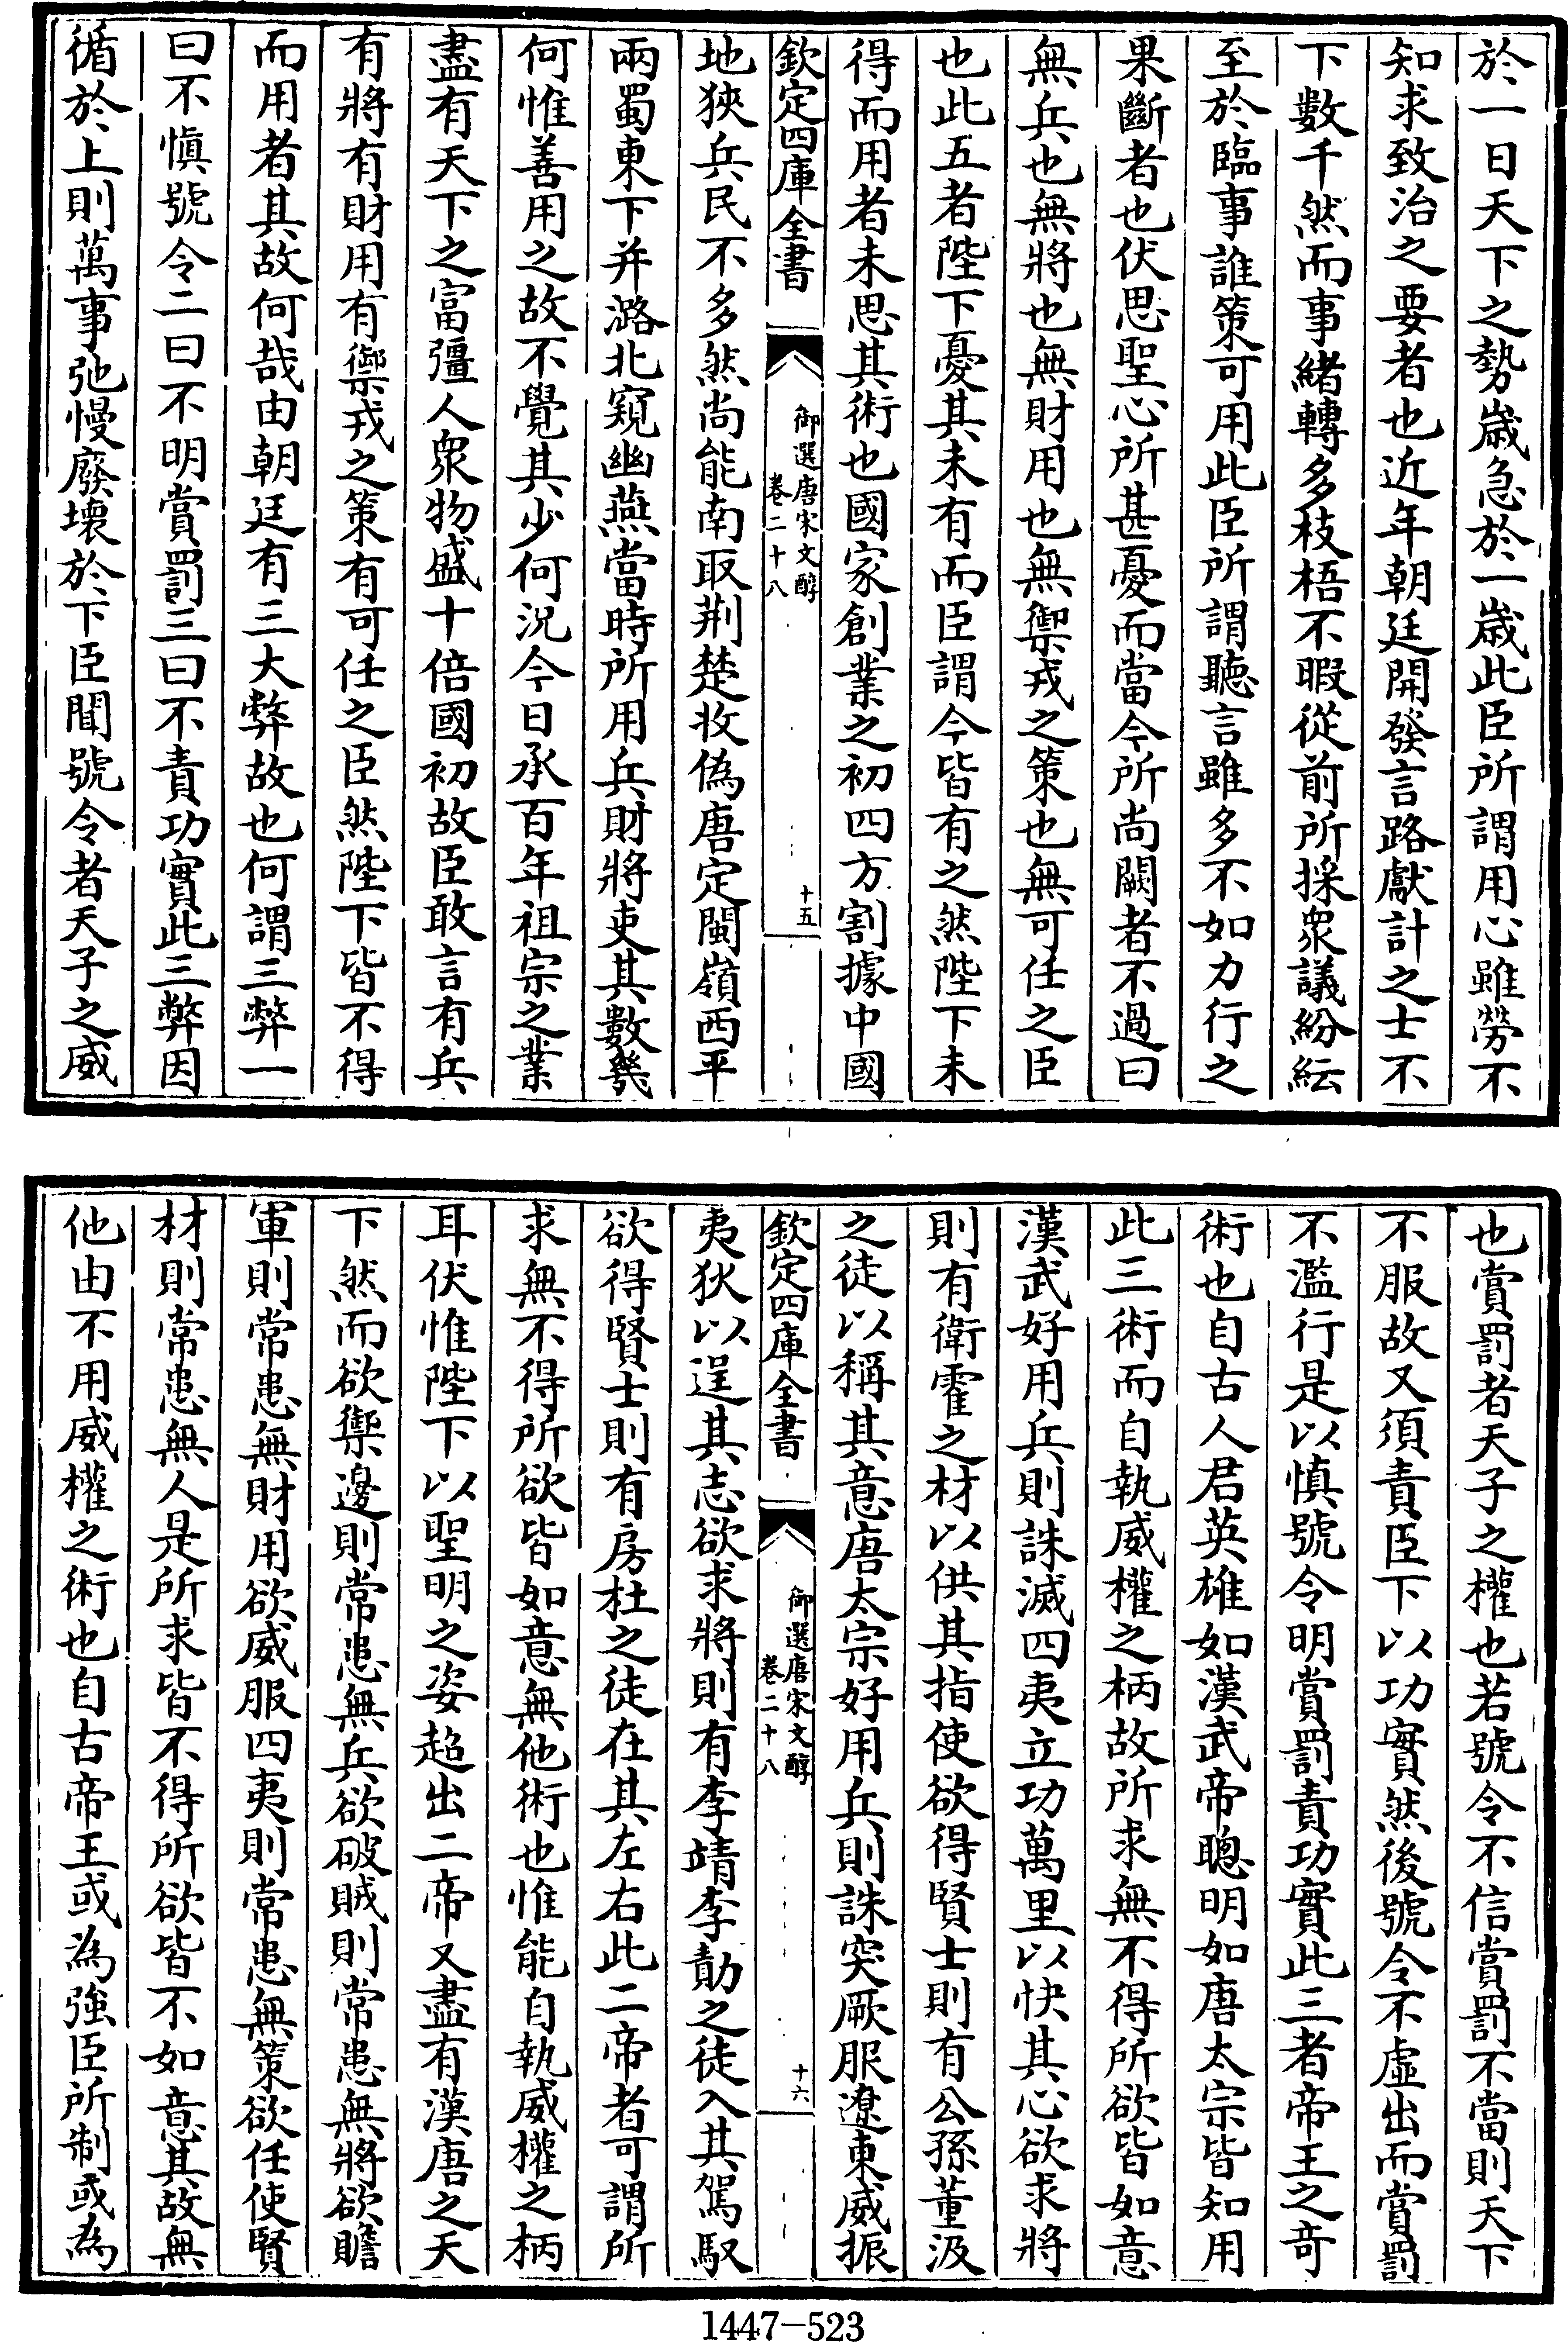 於一日天下之勢歳急於一歳此臣所謂用心雖勞不
知求致治之要者也近年朝廷開發言路獻計之士不
下數千然而事緒轉多枝梧不暇從前所採衆議紛紜
至於臨事誰策可用此臣所謂聽言雖多不如力行之
果斷者也伏思聖心所甚憂而當今所尚闕者不過曰
無兵也無將也無財用也無禦戎之策也無可任之臣
也此五者陛下憂其未有而臣謂今皆有之然陛下未
得而用者未思其術也國家創業之初四方割據中國
欽定四庫全書
御選唐宋文醇
卷二十八
十五
地狹兵民不多然尚能南取荆楚收偽唐定閩嶺西平
兩蜀東下并潞北窺幽燕當時所用兵財將吏其數幾
何惟善用之故不覺其少何況今日承百年祖宗之業
盡有天下之富彊人衆物盛十倍國初故臣敢言有兵
有將有財用有禦戎之策有可任之臣然陛下皆不得
而用者其故何哉由朝廷有三大弊故也何謂三弊一
曰不慎號令二曰不明賞罰三曰不責功實此三弊因
循於上則萬事弛慢廢壞於下臣聞號令者天子之威
也賞罰者天子之權也若號令不信賞罰不當則天下
不服故又須責臣下以功實然後號令不虛出而賞罰
不濫行是以慎號令明賞罰責功實此三者帝王之竒
術也自古人君英雄如漢武帝聰明如唐太宗皆知用
此三術而自執威權之柄故所求無不得所欲皆如意
漢武好用兵則誅滅四夷立功萬里以快其心欲求將
則有衛霍之材以供其指使欲得賢士則有公孫董汲
之徒以稱其意唐太宗好用兵則誅突厥服遼東威振
欽定四庫全書
御選唐宋文醇
卷二十八
十六
夷狄以逞其志欲求將則有李靖李勣之徒入其駕馭
欲得賢士則有房杜之徒在其左右此二帝者可謂所
求無不得所欲皆如意無他術也惟能自執威權之柄
耳伏惟陛下以聖明之姿超出二帝又盡有漢唐之天
下然而欲禦邊則常患無兵欲破賊則常患無將欲贍
軍則常患無財用欲威服四夷則常患無策欲任使賢
材則常患無人是所求皆不得所欲皆不如意其故無
他由不用威權之術也自古帝王或為強臣所制或為
1447-523